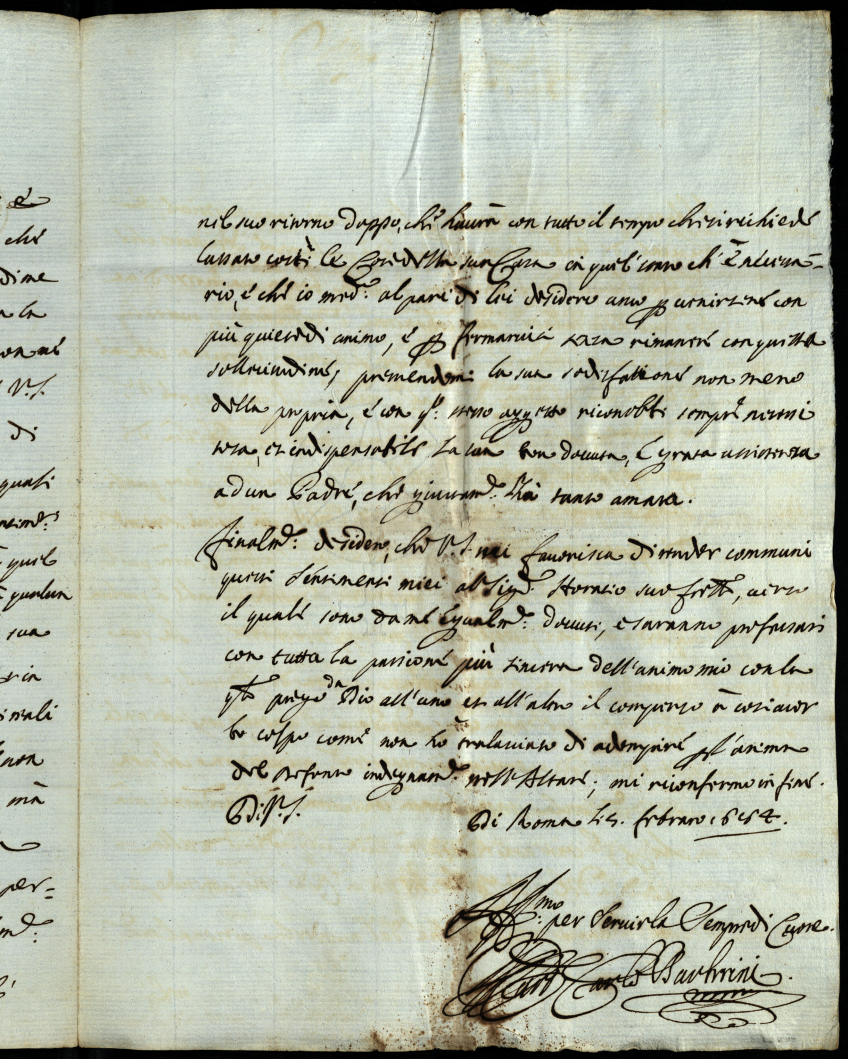 nel suo ritorno doppo, che haurà con tutto il tempo che si richiede
lassate costì le Cose della sua Casa in quel' stato ch' è necessa-
rio, e che io med.º al pari di lei desidero anco p venirsene con
più quiete di animo, e p fermarvisi senza rimanere con questa
sollecitudine, premendomi la sua sodisfatione non meno
della propria, e con q.º stesso oggetto riconobbi sempre necessi
tosa, et indispensabile la sua ben dovuta, e grata assistenza
ad un Padre, che giustam.e hà tanto amata.
Finalm.e desidero, che V.S. mi favorisca di render communi
questi sentimenti miei al Sig.r Horatio suo frello, verso
il quale sono da me egualm.e dovuti, e saranno professati
con tutta la passione più sincera dell'animo mio con la
q.le prego da Dio all'uno et all'altro il compenso à così acer
bo colpo come non hò tralasciato di adempire p l'anima
del defonto indegnam.e nell'Altare; mi riconfermo in fine.
Di V.S. Di Roma li 5. febraro 1654.
Aff.mo per servirla sempre di Cuore.
Card. Carlo Barberini
è
che
dime
a la
non ne
V.S.
di
quali
quel
qualun
sua
non
mà
per-